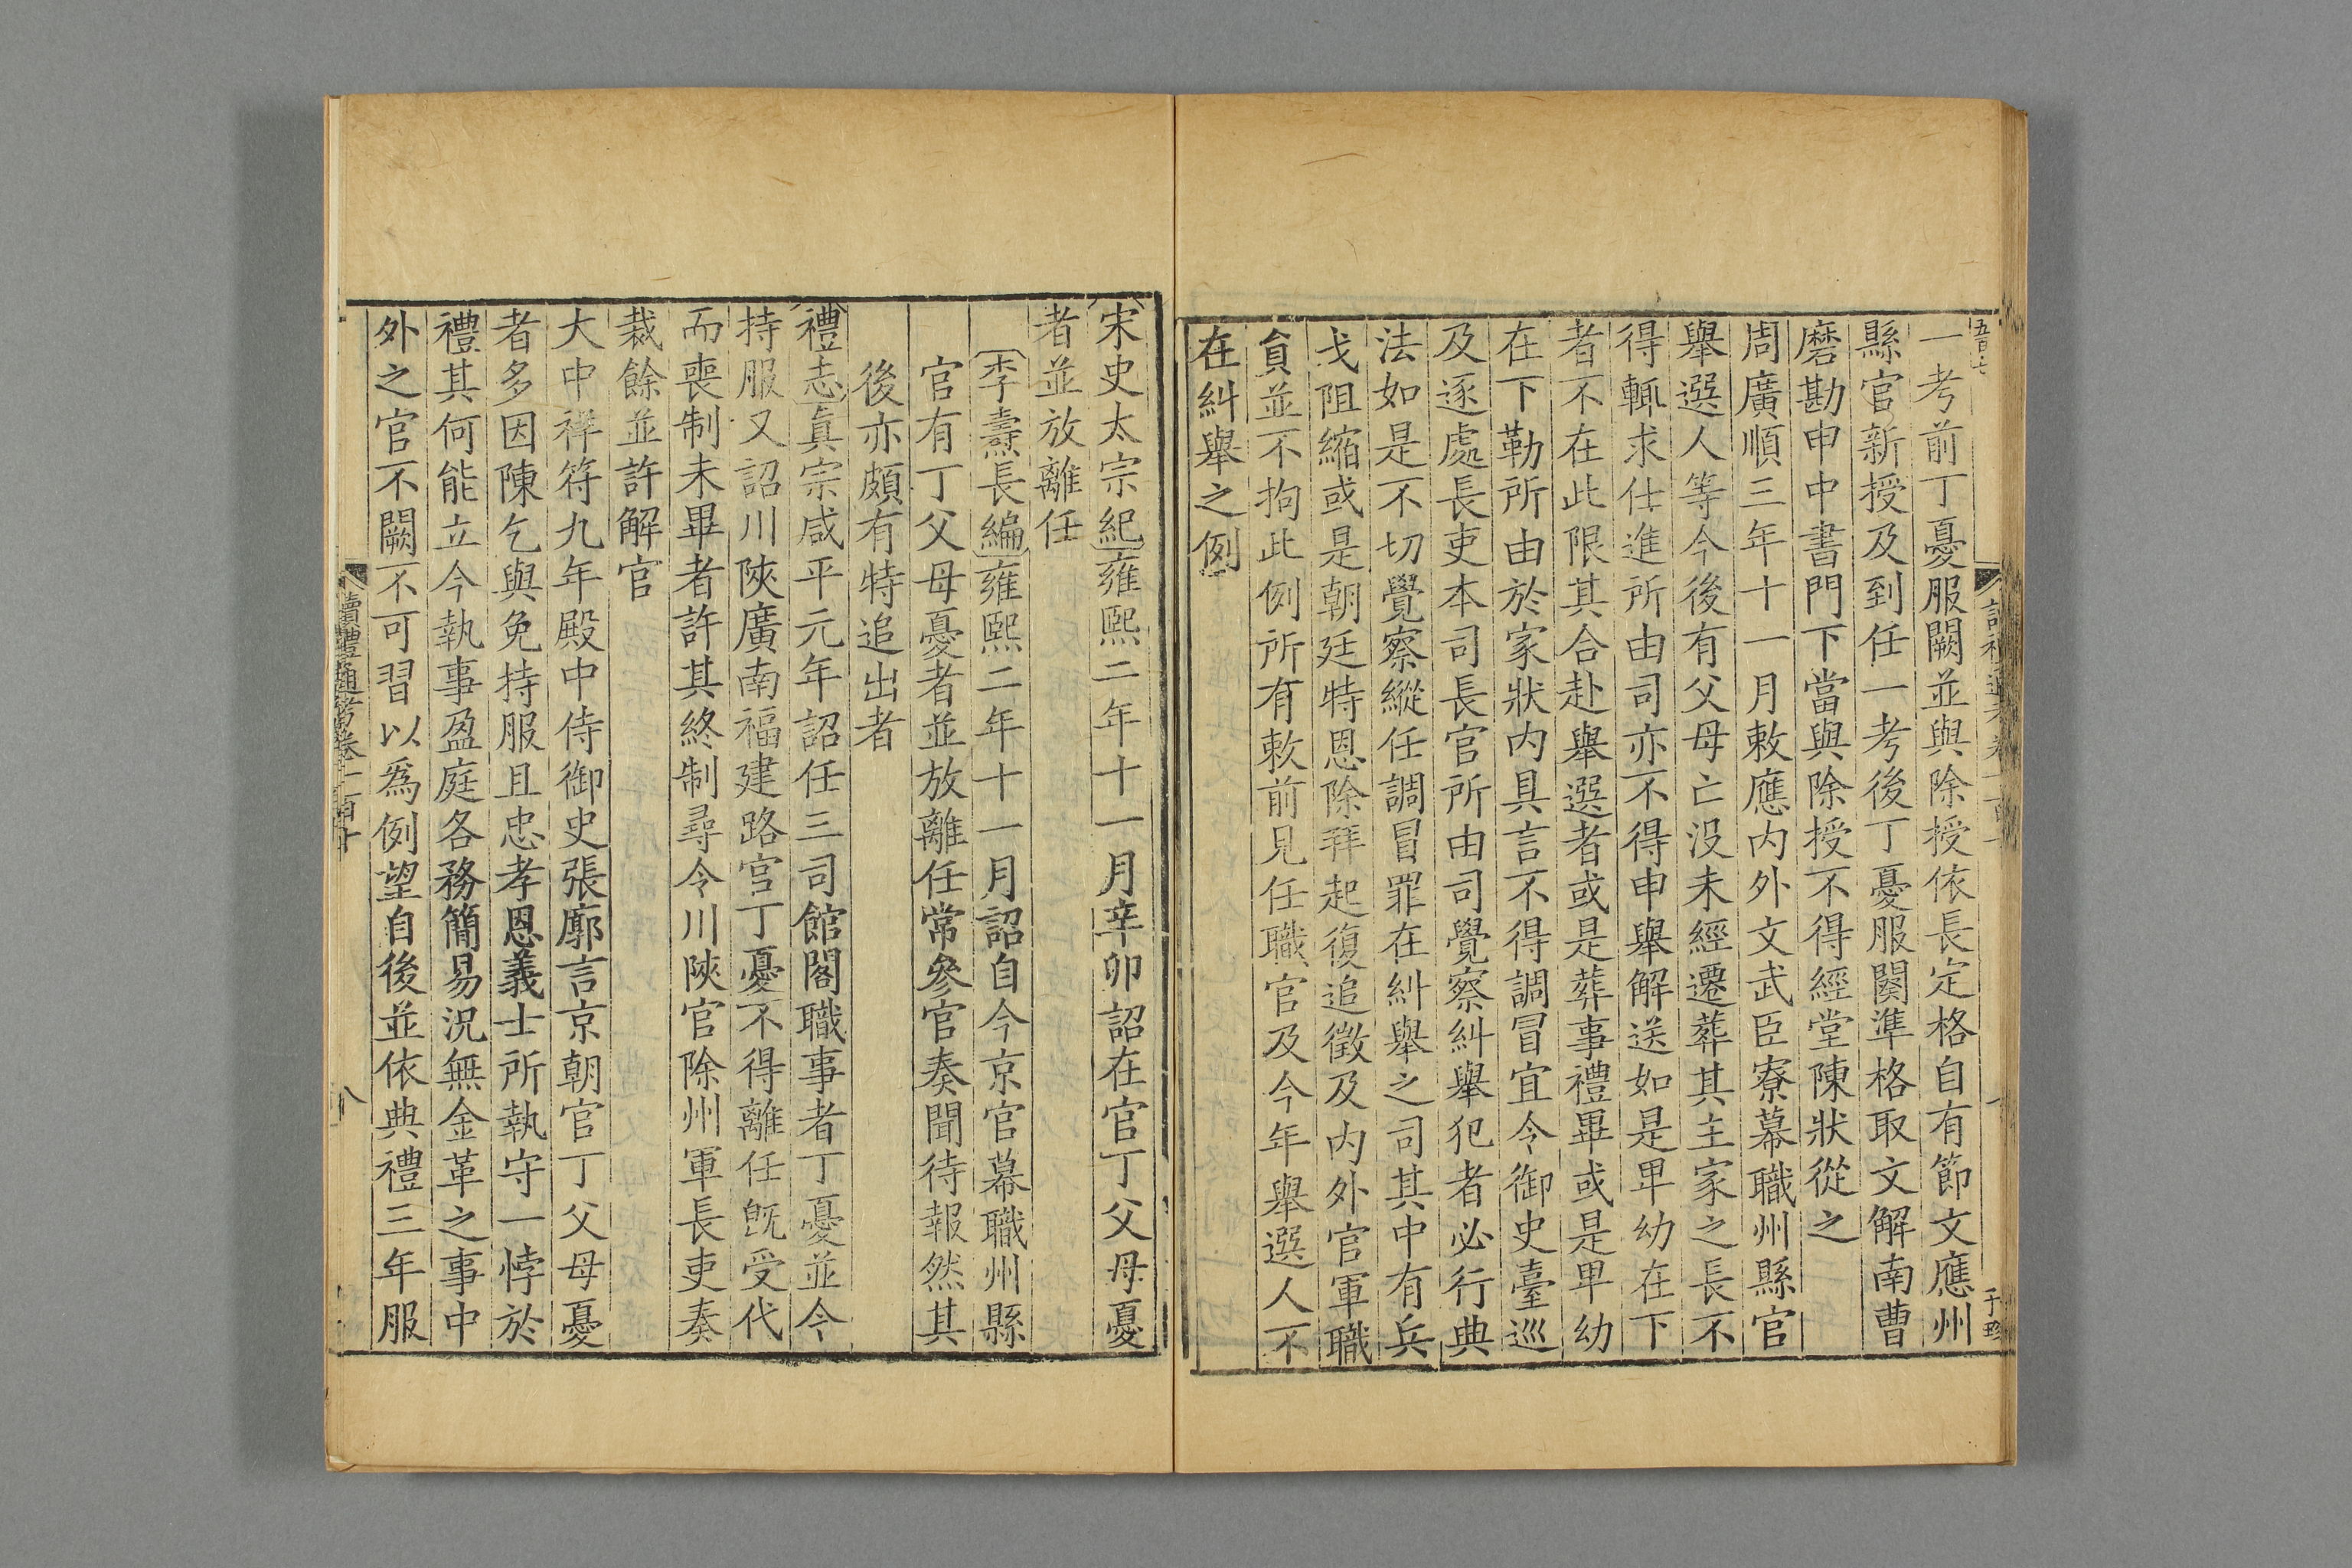 一考前丁憂服闕並與除授依長定格自有節文應州
縣官新授及到任一考後丁憂服闋準格取文解南曹
磨勘申中書門下當與除授不得經堂陳狀從之
周廣順三年十一月敕應內外文武臣寮幕職州縣官
舉選人等今後有父母亡没未經遷葬其主家之長不
得輒求仕進所由司亦不得申舉解送如是卑幼在下
者不在此限其合赴舉選者或是葬事禮畢或是卑幼
在下勒所由於家狀内具言不得調冒宜令御史臺巡
及逐處長吏本司長官所由司覺察糾舉犯者必行典
法如是不切覺察縱任調冒罪在糾舉之司其中有兵
戈阻縮或是朝廷特恩除拜起復追徵及内外官軍職
負並不拘此例所有敕前見任職官及今年舉選人不
在糾舉之例
宋史太宗紀雍熙二年十一月辛卯詔在官丁父母憂
者並放離任
李燾長編雍熙二年十一月詔自今京官幕職州縣
官有丁父母憂者並放離任常參官奏聞待報然其
後亦頗有特追出者
禮志真宗咸平元年詔任三司館閣職事者丁憂並令
持服又詔川陝廣南福建路官丁憂不得離任既受代
而喪制未畢者許其終制尋令川陝官除州軍長吏奏
裁餘並許解官
大中祥符九年殿中侍御史張廓言京朝官丁父母憂
者多因陳乞與免持服且忠孝恩義士所執守一悖於
禮其何能立今執事盈庭各務簡易況無金革之事中
外之官不闕不可習以為例望自後並依典禮三年服
讀禮通考卷一百十
八